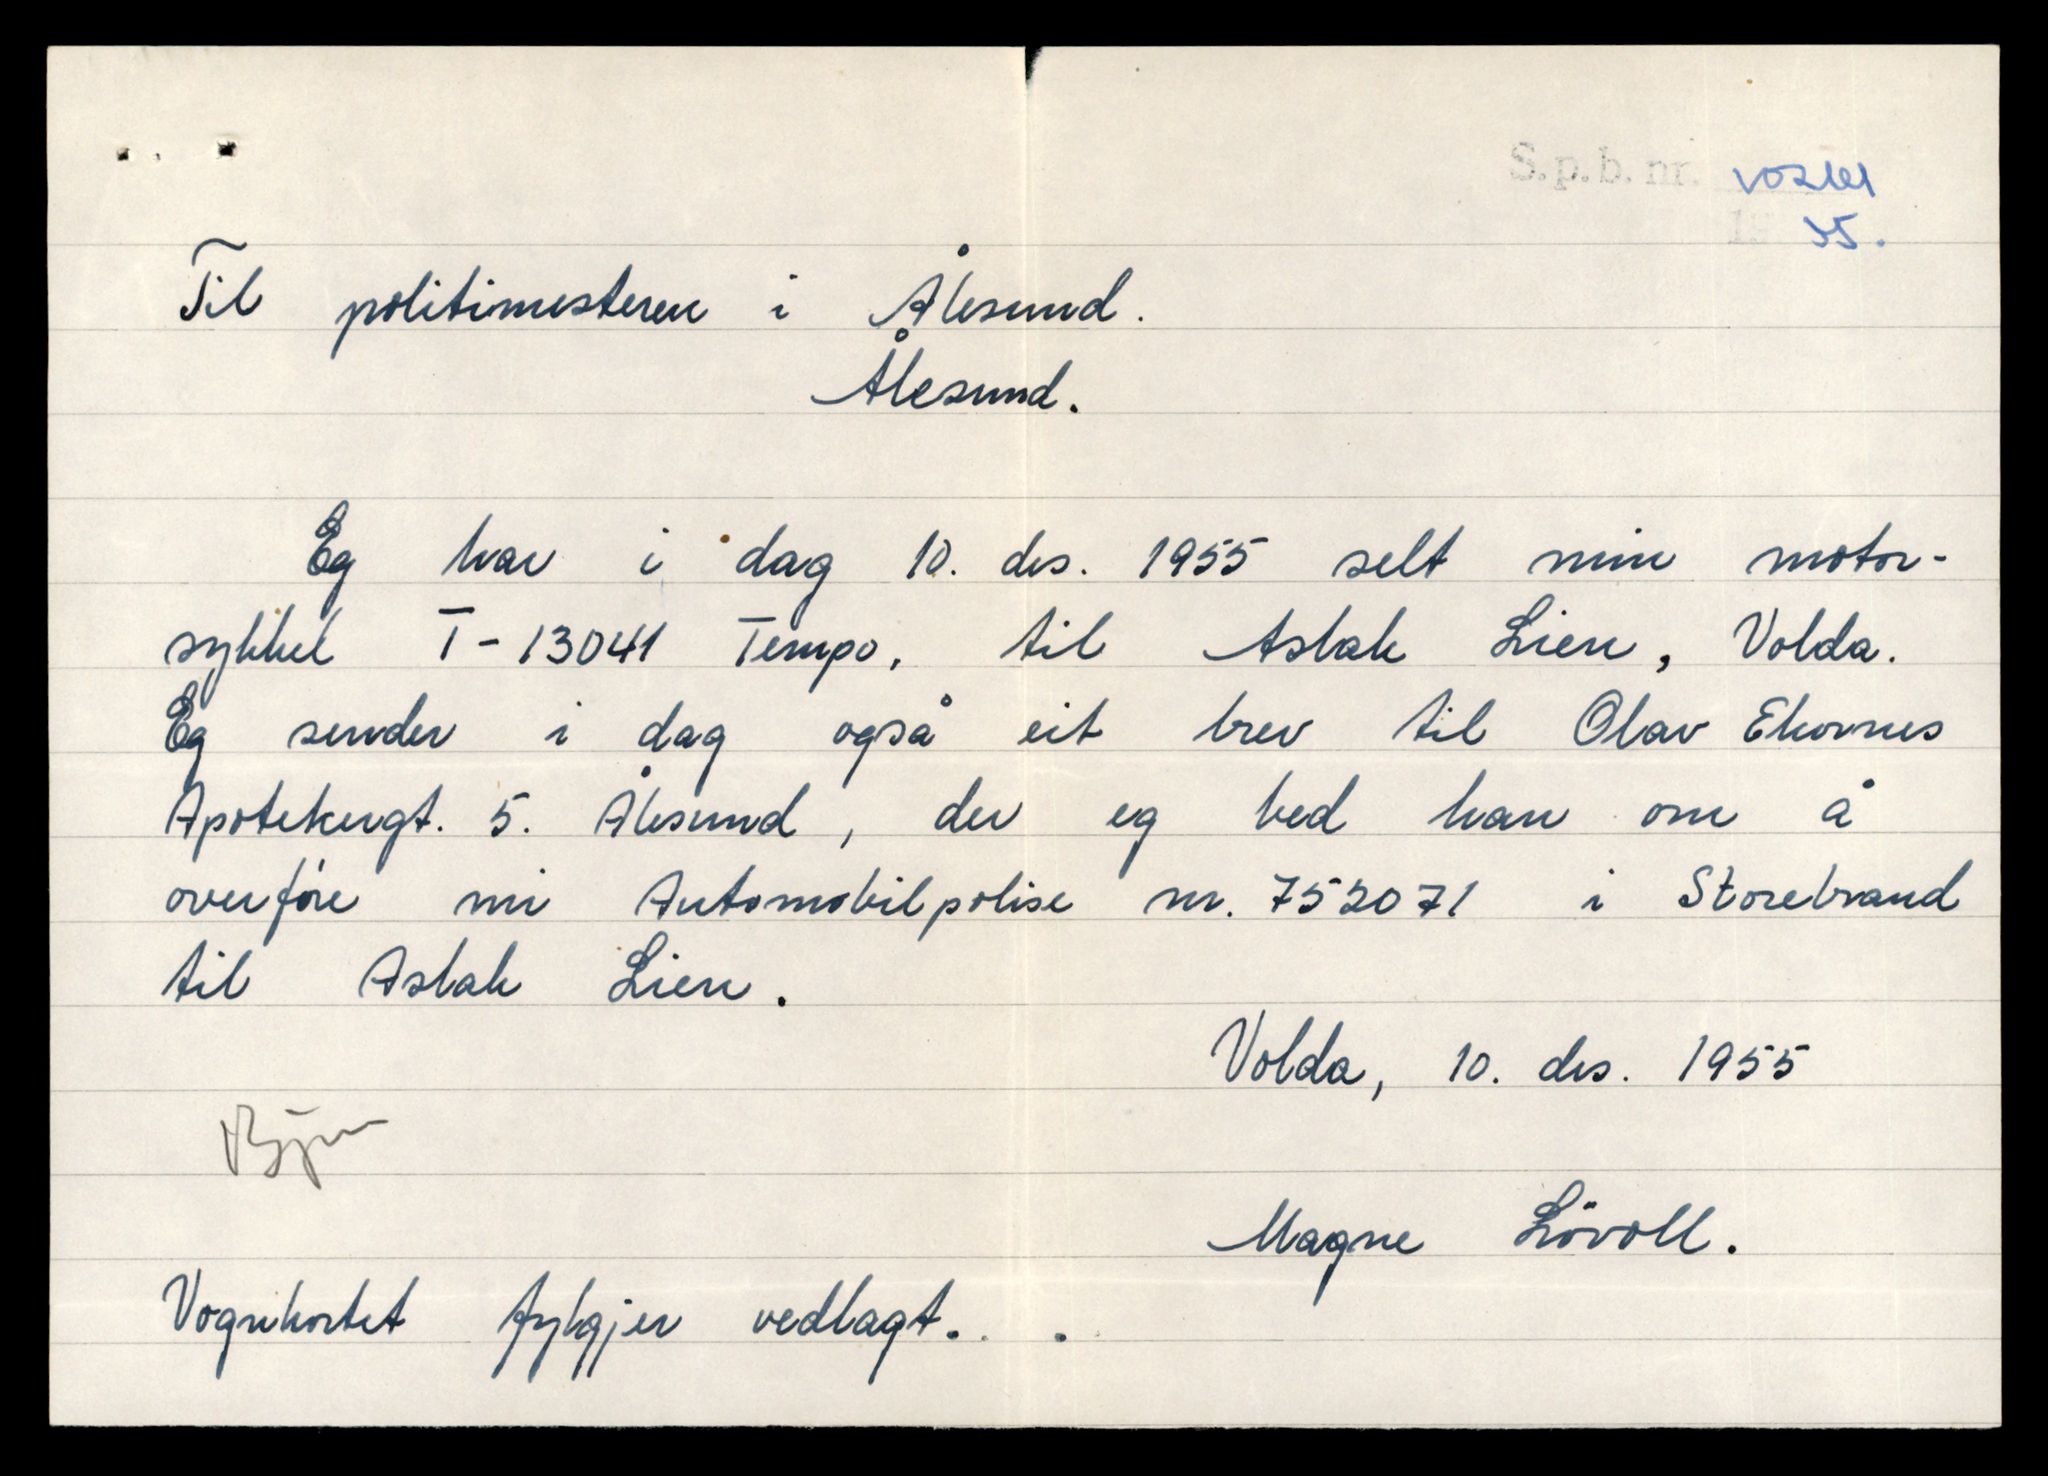 S.p.b. nr.
Til politimesteren i Ålesund.
Ålesund.
Eg har i dag 10. des. 1955 selt min motor-
sykkel T-13041 Tempo, til Aslak Lien, Volda.
Eg sender i dag også eit brev til Olav Ekornes
Apotekergt. 5. Ålesund, der eg bed han om å
overføre mi Automobilpolise nr. 752071 i Storebrand
til Aslak Lien.
Volda, 10. des. 1955
Magne Lövoll.
Vognkortet fylgjer vedlagt.